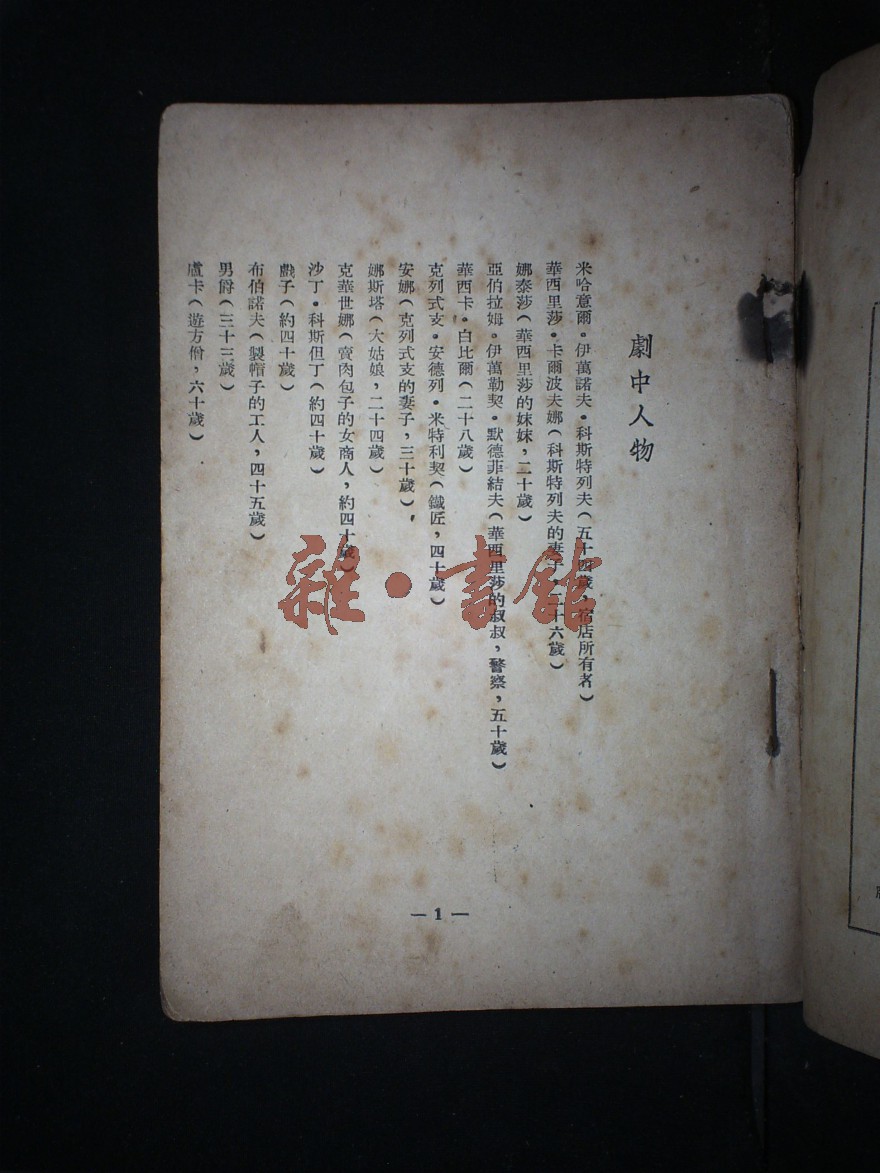 劇中人物
米哈意爾·伊萬諾夫·科斯特列夫(五十四歲,宿店所有者)
華西里莎·卡爾波夫娜(科斯特列夫的妻子,二十六歲)
娜泰莎(華西里莎的妹妹,二十歲)
亞伯拉姆·伊萬勒契·默德菲結夫(華西里莎的叔叔,警察,五十歲)
華西卡·白比爾(二十八歲)
克列式支·安德列·米特利契(鐵匠,四十歲)
安娜(克列式支的妻子,三十歲),
娜斯塔(大姑娘,二十四歲)
克華世娜(賣肉包子的女商人,約四十歲)
沙丁·科斯但丁(約四十歲)
戲子(約四十歲)
布伯諾夫(製帽子的工人,四十五歲)
男爵(三十三歲)
盧卡(遊方僧,六十歲)
— 1 —
雜·書館